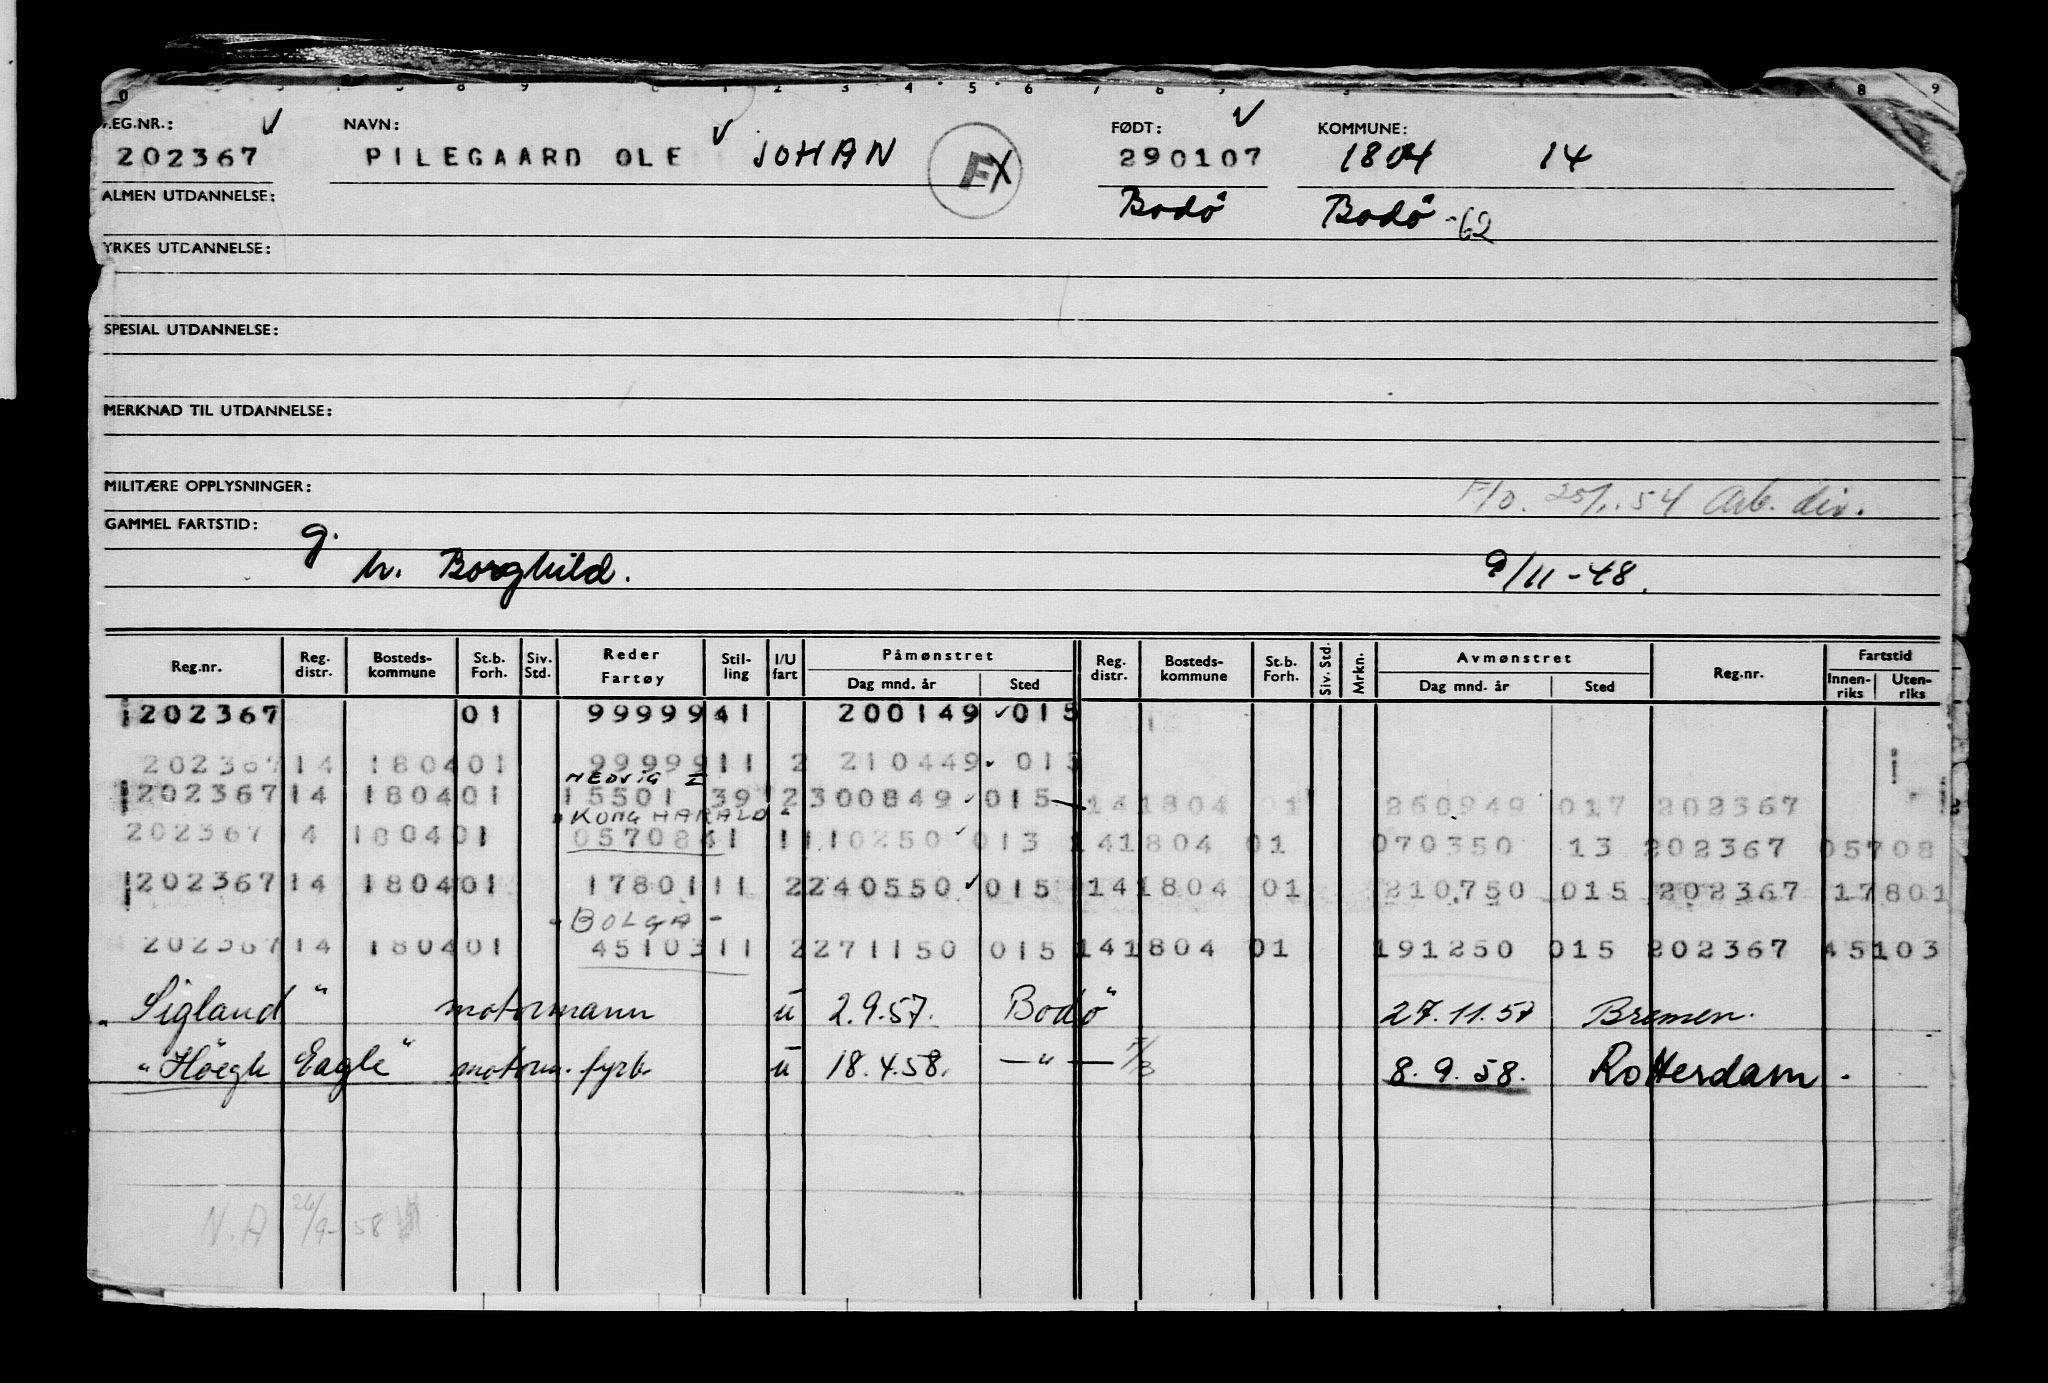 REG.NR.: NAVN: FØDT: KOMMUNE:
202367 PILEGAARD OLE JOHAN FX 290107 1804 14
ALMEN UTDANNELSE: Bodö Bodö -62
YRKES UTDANNELSE:
SPESIAL UTDANNELSE:
MERKNAD TIL UTDANNELSE:
MILITÆRE OPPLYSNINGER: 54 Arb. div.
GAMMEL FARTSTID: g.
h. Borghild. 9/11-48.
Reg.nr. Reg. distr. Bosteds-kommune St.b. Forh. Siv. Std. Reder Fartøy Stil-ling I/U fart Påmønstret Dag mnd. år Sted Reg. distr. Bosteds-kommune St.b. Forh. Siv. Std. Mrkn. Avmønstret Dag mnd. år Sted Reg.nr. Fartstid Innen-riks Uten-riks
202367 01 99999 41 200149 015
202367 14 1804 01 99999 11 2 210449 015
HEDVIG I
202367 14 1804 01 15501 39 2 300849 015 14 1804 01 260949 017 202367
"KONG HARALD"
202367 14 1804 01 05708 41 1 110250 013 14 1804 01 070350 13 202367 05708
202367 14 1804 01 17801 11 2 240550 015 14 1804 01 210750 015 202367 17801
- BOLGA -
202367 14 1804 01 45103 11 2 271150 015 14 1804 01 191250 015 202367 45103
"Sigland" motormann u 2.9.57. Bodö 27.11.57 Bremen.
"Höegh Eagle" motorm. fyrb. u 18.4.58. —"— 8.9.58. Rotterdam.
N.A 26/9-58